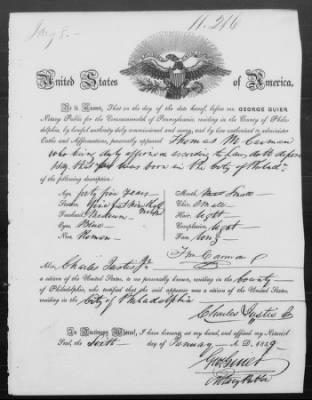 Jany 8
11.216
United States of America.
Be it Known, That on the day of the date hereof, before me GEORGE GUIER
Notary Public for the Commonwealth of Pennsylvania, residing in the County of Phila-
delphia, by lawful authority duly commissioned and sworn, and by law authorized to administer
Oaths and Affirmations, personally appeared Thomas M. Carman
who being duly affirmed according to law, doth depose
say that he was born in the City of Philada
of the following description:
Age forty five years
Mouth Small
Stature five feet
Chin Small
Forehead Medium
Hair light
Eyes Blue
Complexion light
Nose Roman
Face long
T M Carman
Also, Charles Justis Jr
a citizen of the United States, to me personally known, residing in the County
of Philadelphia, who testified that the said appearer was a citizen of the United States,
residing in the City of Philadelphia
Charles Justis Jr
In Testimony Whereof, I have hereunto set my hand, and affixed my Notarial
Seal, the Sixth day of January A. D. 1849
Geo Guier
Notary Public